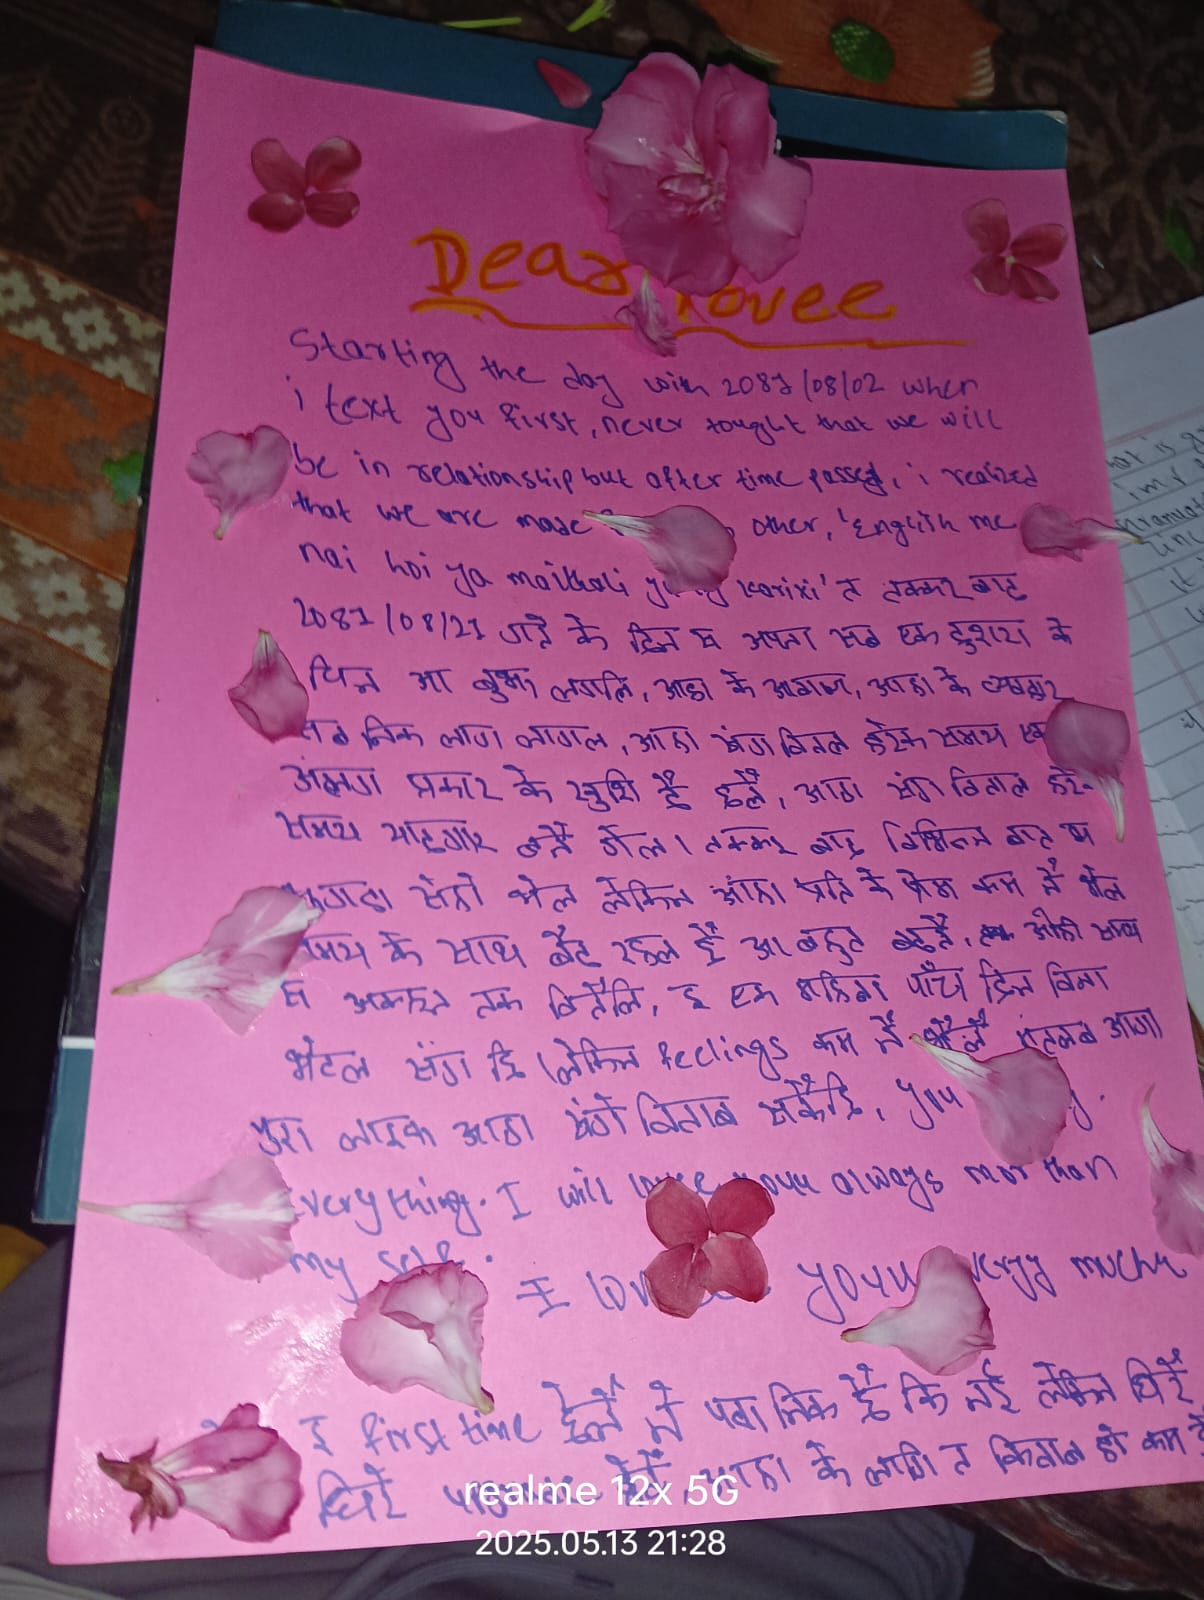 Dear lovee
Starting the day with 2081/08/02 when
i text you first, never tought that we will
be in relationship but after time passed, i realized
that we are made other, 'English me
nai hoi ya maithali karixi' त तकर बाद
2081/08/21 गते के दिन स अपना सब एक दुसरा के
चिन आ बुझ लगलि, आहा के आवाज, आहा के व्यवहार
सब निक लाग लागल, आहा संग बितल हरेक समय एक
अलग प्रकार के खुशि दै छलै, आहा संग बिताल हरेक
समय यादगार बनै गेल। तकर बाद विभिन्न बात स
झगडा सेहो भेल लेकिन आहा प्रति के प्रेम कम नै भेल
समय के साथ बैढ रहल छै आ बहुत बढतै, ओही समय
स अखन तक बितैलि, इ एक महिना पाँच दिन बिना
भेटल संग छि। लेकिन feelings कम नै भेलै मतलब आगा
पुरा लाइफ आहा संगे बिताब सकैछि, you
everything. I will lovee youu always mor than
my self.
I youuu veryy muchh
इ first time छलै नै पता निक छै कि नई लेकिन धिरे
धिरे आहा के लागि त कितना हो कम
What is
realme 12x 5G
2025.05.13 21:28